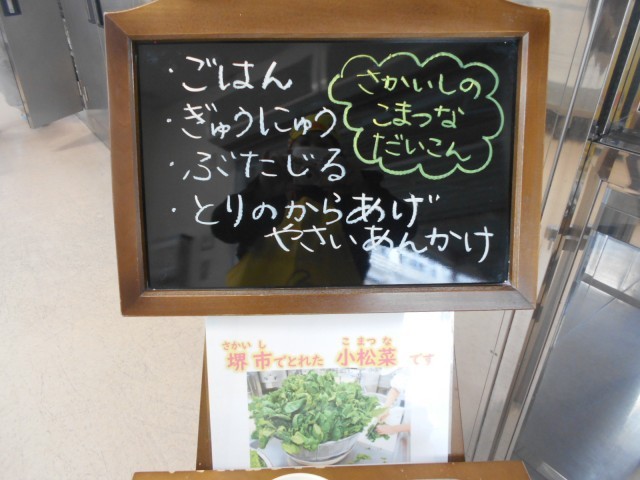 ・ごはん
・ぎゅうにゅう
・ぶたじる
・とりのからあげ
やさいあんかけ
さかいしの
こまつな
だいこん
さかい し こ まつ な
堺市でとれた 小松菜 です